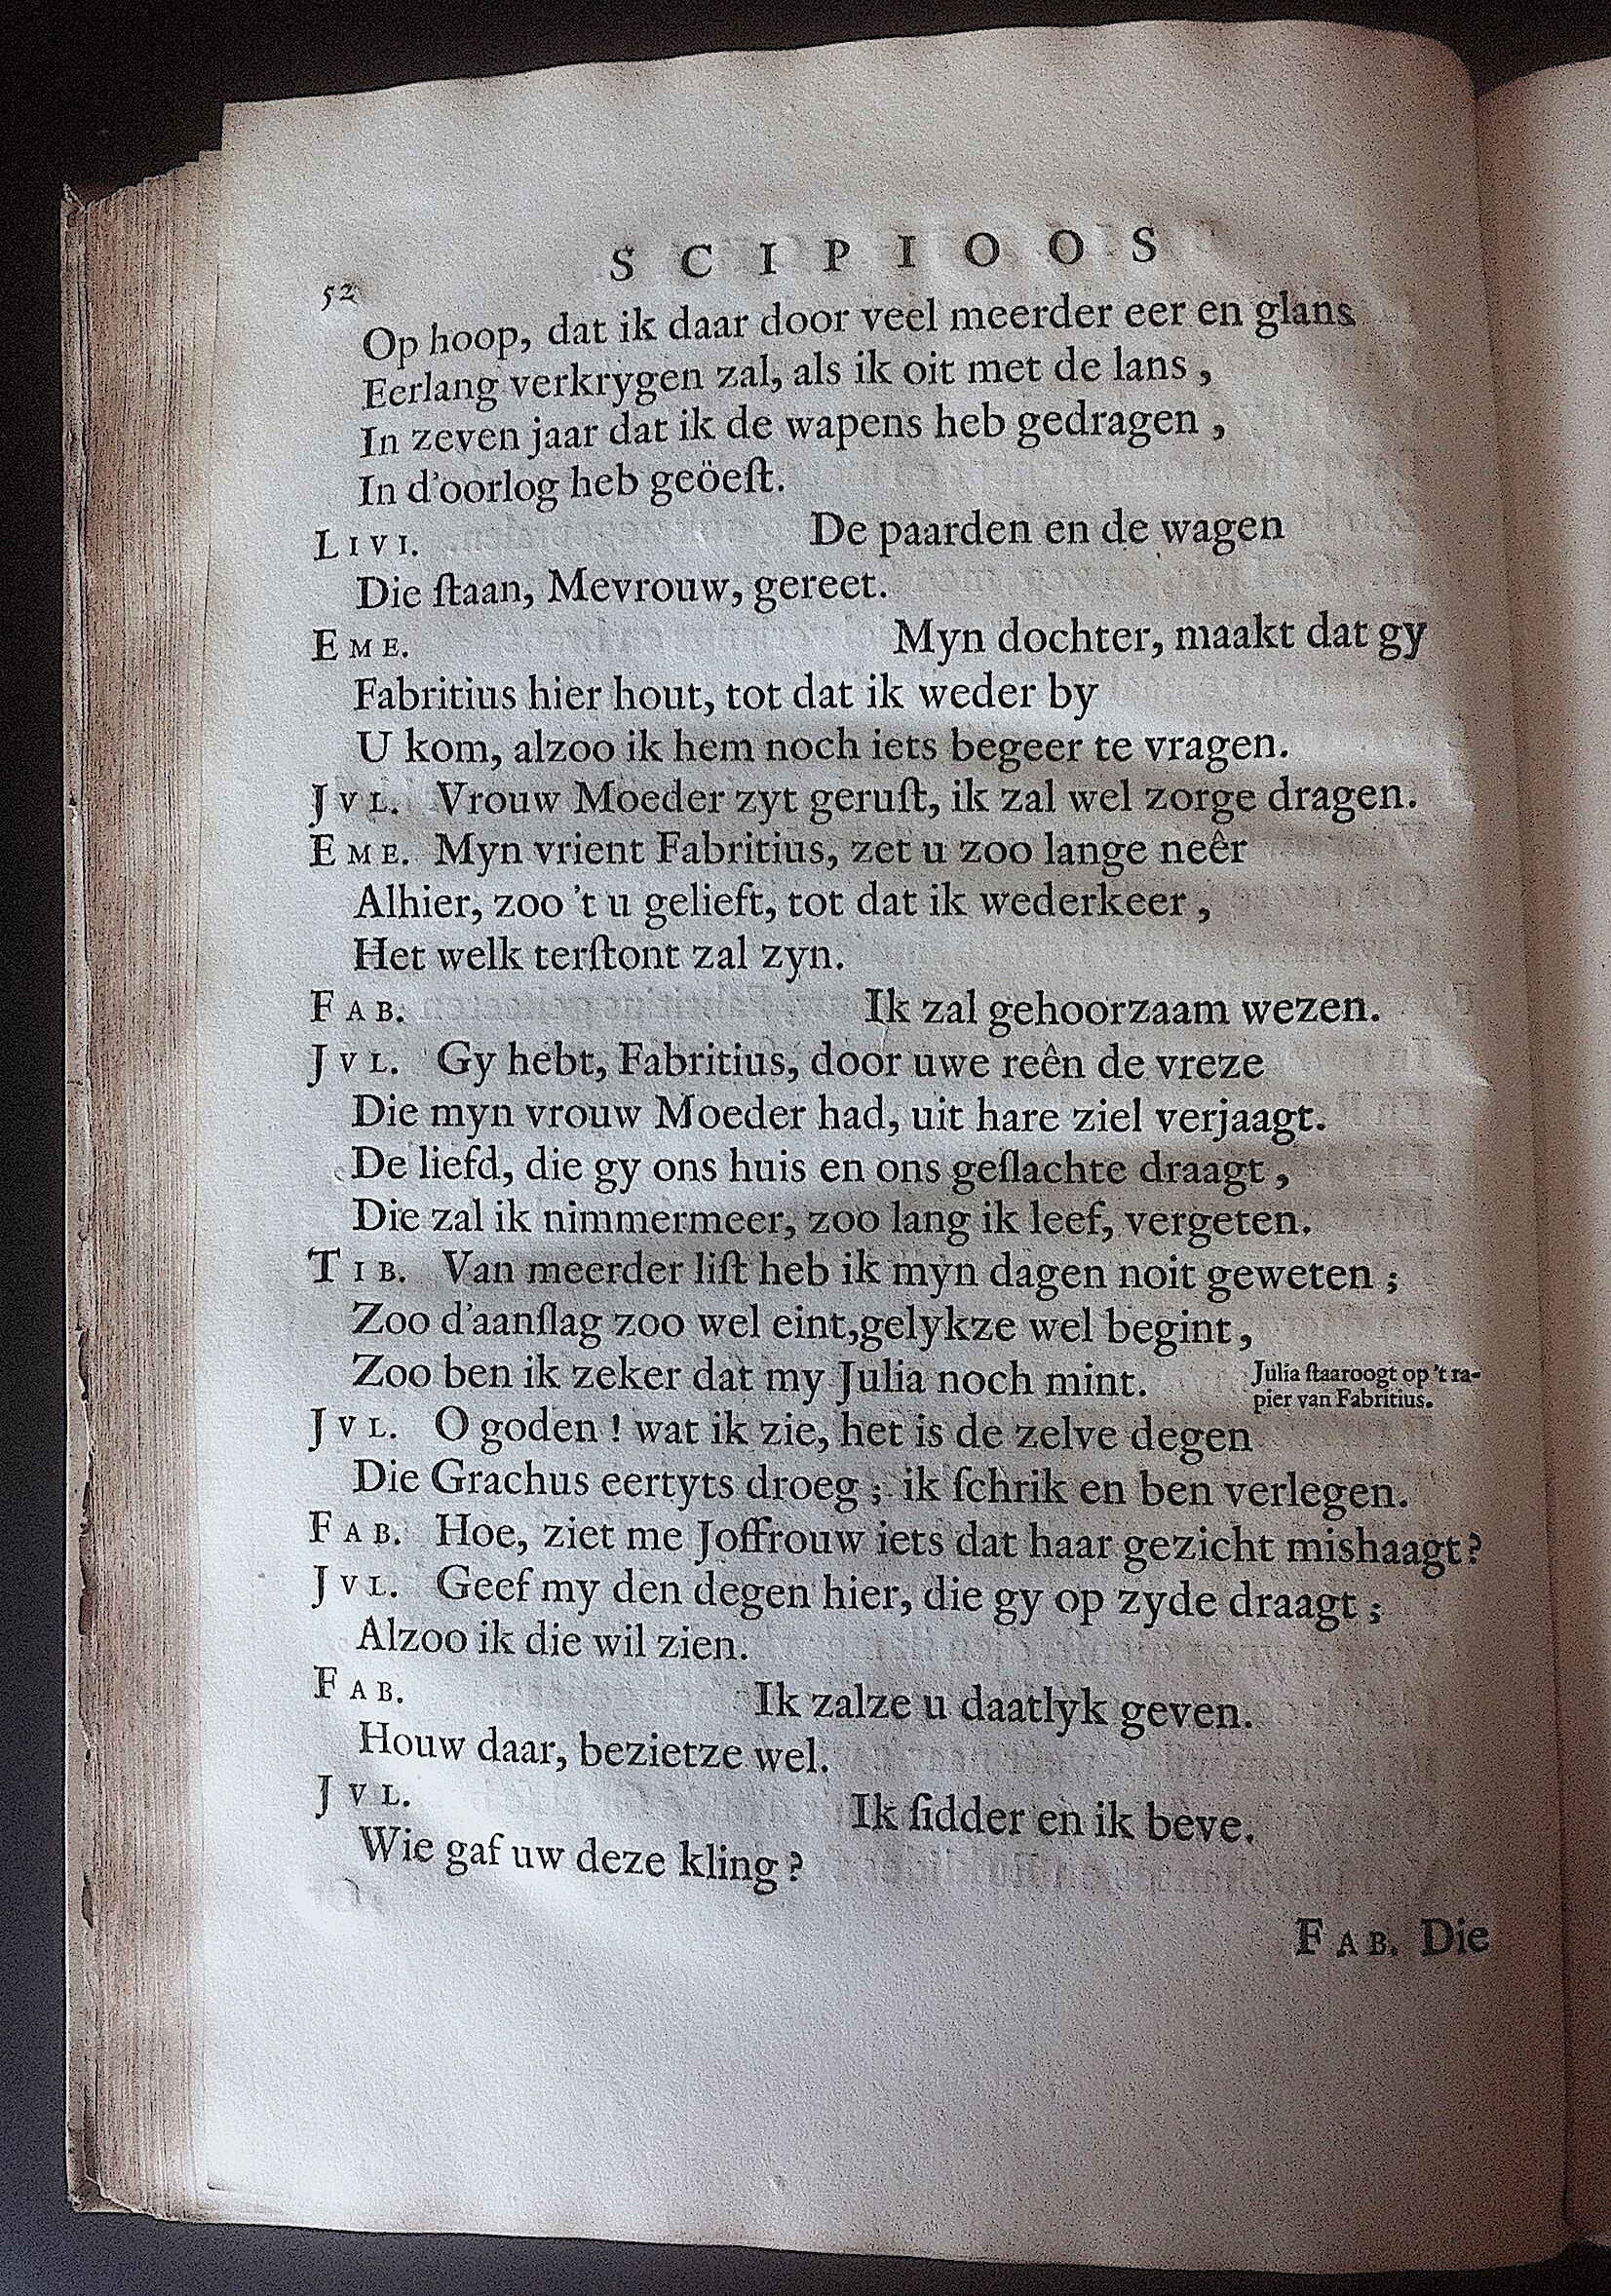 52
SCIPIOOS
Op hoop, dat ik daar door veel meerder eer en glans
Eerlang verkrygen zal, als ik oit met de lans ,
In zeven jaar dat ik de wapens heb gedragen ,
In d'oorlog heb geöeſt.
LIVI. De paarden en de wagen
Die ſtaan, Mevrouw, gereet.
EME. Myn dochter, maakt dat gy
Fabritius hier hout, tot dat ik weder by
U kom, alzoo ik hem noch iets begeer te vragen.
JVL. Vrouw Moeder zyt geruſt, ik zal wel zorge dragen.
EME. Myn vrient Fabritius, zet u zoo lange neêr
Alhier, zoo 't u gelieft, tot dat ik wederkeer ,
Het welk terſtont zal zyn.
FAB. Ik zal gehoorzaam wezen.
JVL. Gy hebt, Fabritius, door uwe reên de vreze
Die myn vrouw Moeder had, uit hare ziel verjaagt.
De liefd, die gy ons huis en ons geſlachte draagt ,
Die zal ik nimmermeer, zoo lang ik leef, vergeten.
TIB. Van meerder liſt heb ik myn dagen noit geweten ;
Zoo d'aanſlag zoo wel eint,gelykze wel begint ,
Zoo ben ik zeker dat my Julia noch mint.
Julia ſtaaroogt op 't ra-
pier van Fabritius.
JVL. O goden ! wat ik zie, het is de zelve degen
Die Grachus eertyts droeg ; ik ſchrik en ben verlegen.
FAB. Hoe, ziet me Joffrouw iets dat haar gezicht mishaagt?
JVL. Geef my den degen hier, die gy op zyde draagt ;
Alzoo ik die wil zien.
FAB. Ik zalze u daatlyk geven.
Houw daar, bezietze wel.
JVL. Ik ſidder en ik beve.
Wie gaf uw deze kling ?
FAB. Die